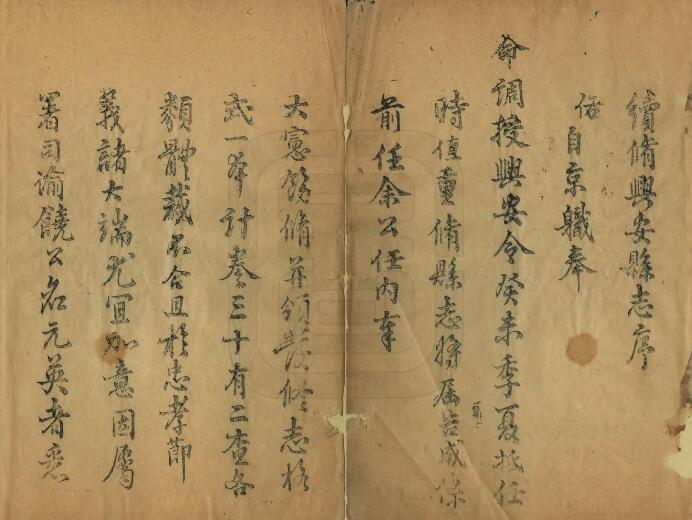 續脩興安縣志序
偣自京職奉
命調授興安令癸未季夏抵任
時值重脩縣志將屆告成係
前任余公任内奉
大憲飭脩并領發修志格
式一本計卷三十有二查各
類體裁不合且於忠孝節
義諸大端尤宜加意因屬
署司諭饒公名元英者悉